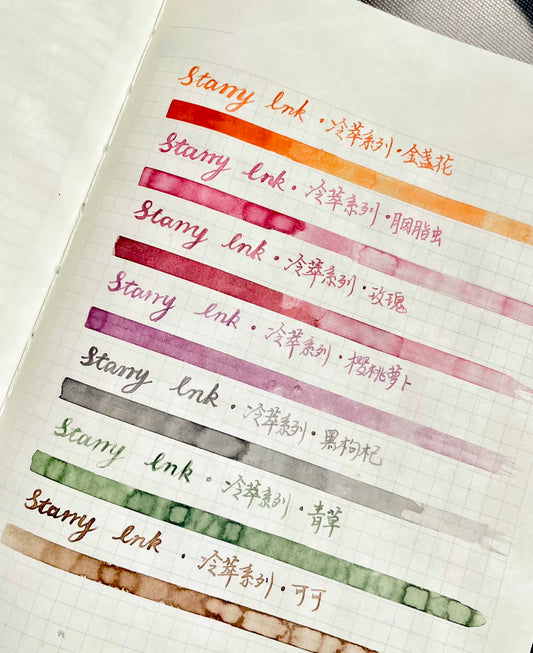 Starry Ink · 冷萃系列 · 金盏花
Starry Ink · 冷萃系列 · 胭脂虫
Starry Ink · 冷萃系列 · 玫瑰
Starry Ink · 冷萃系列 · 樱桃萝卜
Starry Ink · 冷萃系列 · 黑枸杞
Starry Ink · 冷萃系列 · 青草
Starry Ink · 冷萃系列 · 可可